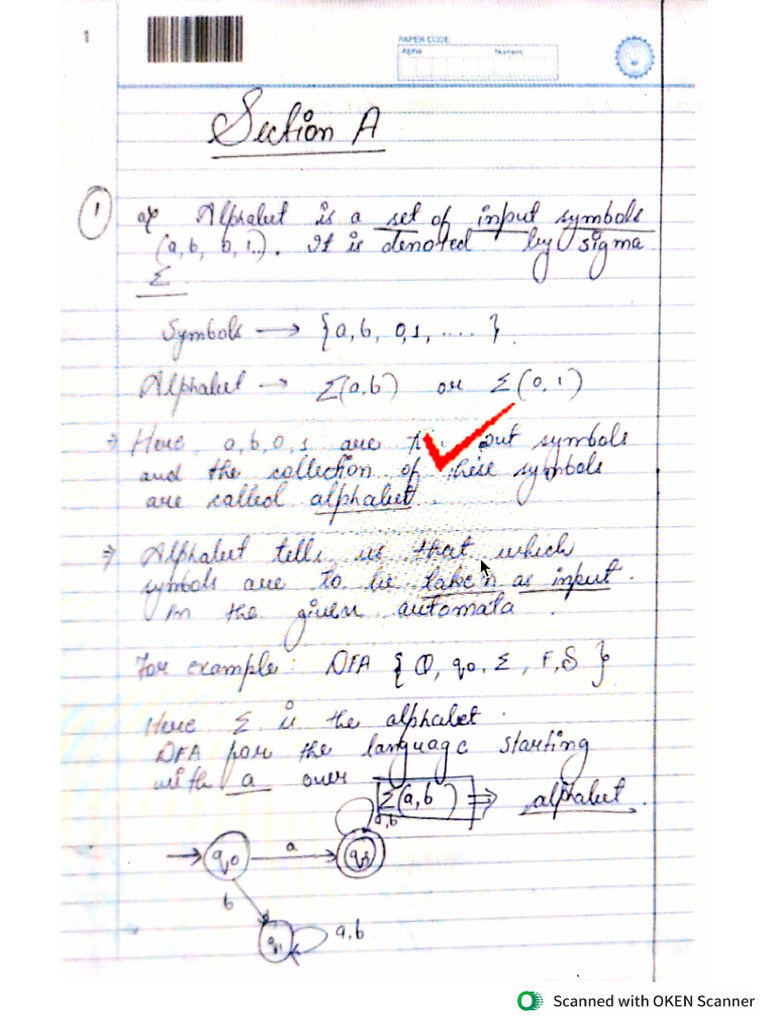 1
PAPER CODE
Alpha Numeric
Section A
1 a) Alphabet is a set of input symbols
(a, b, 0, 1.). It is denoted by sigma
Σ
Symbols → {a, b, 0, 1, .... }
Alphabet → Σ(a, b) or Σ(0, 1)
⇒ Here, a, b, 0, 1 are put symbols
and the collection of these symbols
are called alphabet.
⇒ Alphabet tells us that which
symbols are to be taken as input.
in the given automata.
For example: DFA { Q, q0, Σ, F, δ }
Here Σ is the alphabet.
DFA for the language starting
with a over Σ(a, b) ⇒ alphabet.
a,b
q0 a
b
q1 a,b
Scanned with OKEN Scanner